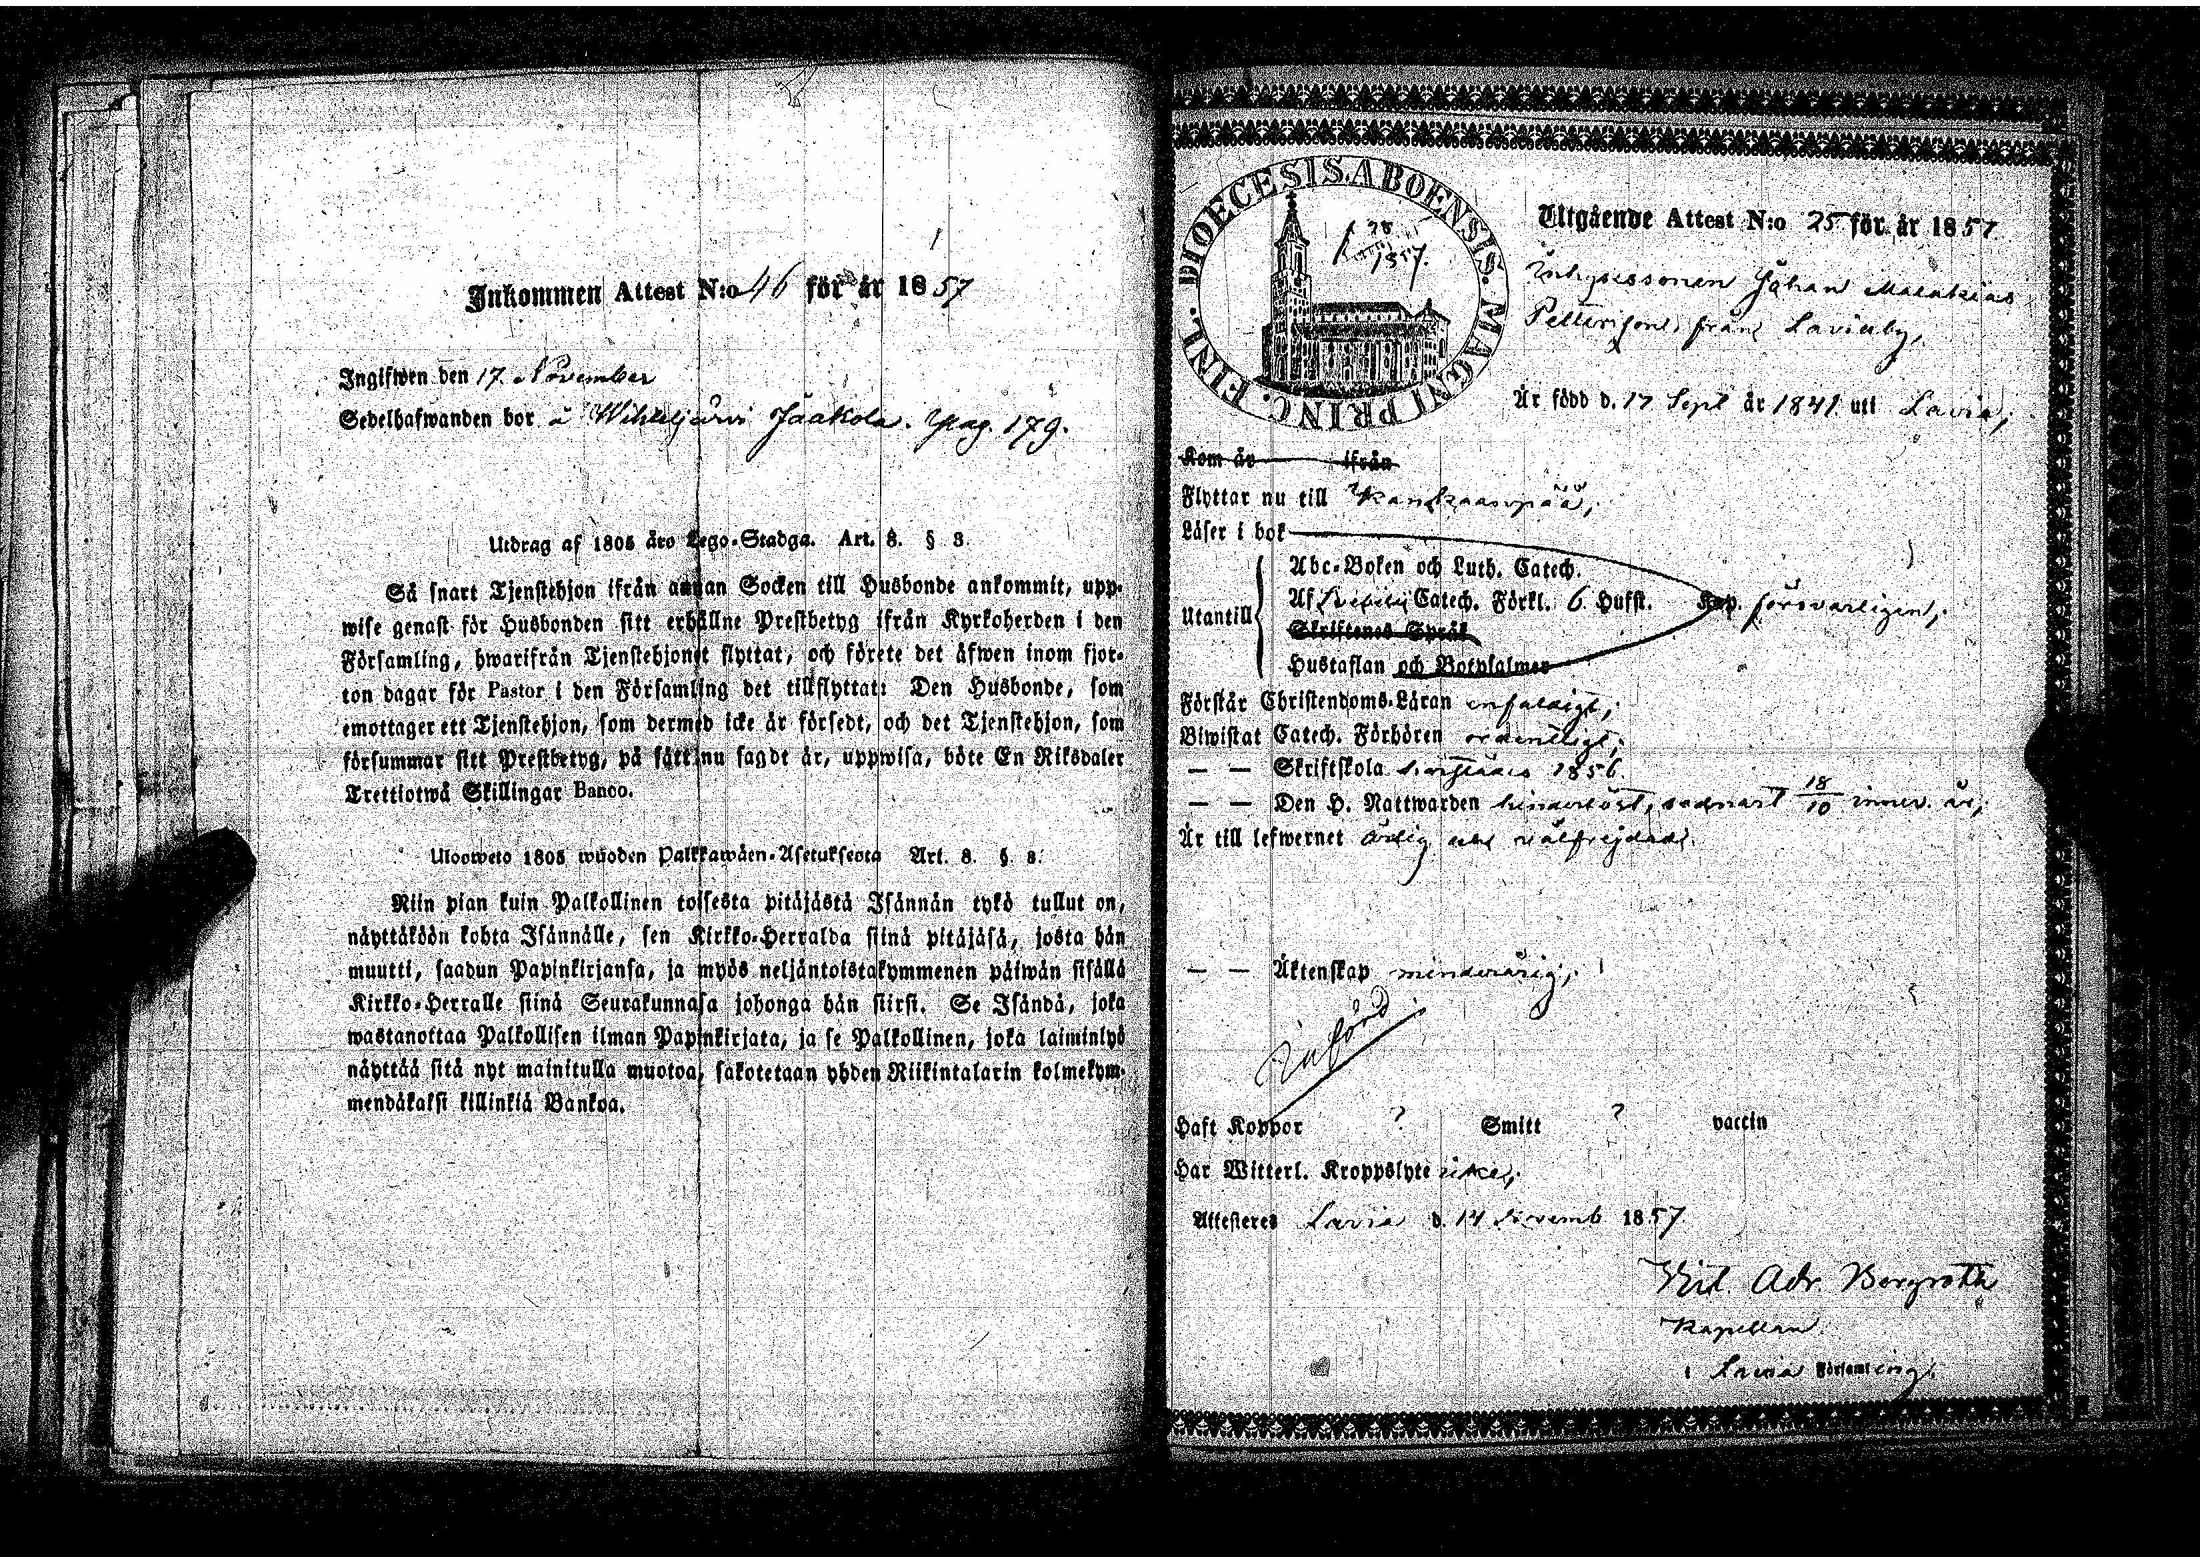 Inkommen Attest N:o 46 för år 1857
Ingifwen den 17. November
Sedelhafwanden bor å Wihteljärvi Jaakola. pag. 179.
Utdrag af 1805 års Lego-Stadga. Art. 8. § 3.
Så snart Tjenstehjon ifrån annan Socken till Husbonde ankommit, upp-
wise genast för Husbonden sitt erhållne Prestbetyg ifrån Kyrkoherden i den
Församling, hwarifrån Tjenstehjonet flyttat, och förete det äfwen inom fjor-
ton dagar för Pastor i den Församling det tillflyttat: Den Husbonde, som
emottager ett Tjenstehjon, som dermed icke är försedt, och det Tjenstehjon, som
försummar sitt Prestbetyg, på sätt nu sagdt är, uppwisa, böte En Riksdaler
Trettiotwå Skillingar Banco.
Ulosweto 1805 wuoden Palkkawäen-Asetuksesta Art. 8. §. 3.
Niin pian kuin Palkollinen toisesta pitäjästä Isännän tykö tullut on,
näyttäköön kohta Isännälle, sen Kirkko-Herralda siinä pitäjäsä, josta hän
muutti, saadun Papinkirjansa, ja myös neljäntoistakymmenen päiwän sisällä
Kirkko-Herralle siinä Seurakunnasa johonga hän siirsi. Se Isändä, joka
wastanottaa Palkollisen ilman Papinkirjata, ja se Palkollinen, joka laiminlyö
näyttää sitä nyt mainitulla muotoa, sakotetaan yhden Riikintalarin kolmekym-
mendäkaksi killinkiä Bankoa.
DIOECESIS ABOENSIS. MAGNI PRINC. FINL.
1857.
Utgående Attest N:o 25 för år 1857
Ynglingspersonen Johan Malakias
Pettersson, från Laviaby,
Är född d. 17 Sept år 1841 uti Lavia,
Kom år ifrån
Flyttar nu till Kankaanpää,
Läser i bok
Utantill
Abc-Boken och Luth. Catech.
Af Svebilii Catech. Förkl. 6 Hufst. Kap. försvarligen,
Skriftenes Språk
Hustaflan och Botpsalmer
Förstår Christendoms-Läran enfaldigt,
Biwistat Catech. Förhören ordentligt,
— — Skriftskola 1856
— — Den H. Nattwarden hinderlöst, sednast 18/10 innev. år,
Är till lefwernet ärlig och välfrejdad.
— — Äktenskap minderårig,
Införd
Haft Koppor ? Smitt ? vaccin
Har Witterl. Kroppslyte icke,
Attesteres Lavia d. 14 Novemb 1857
Adr. Bergroth
Kapellan
i Lavia Församling.